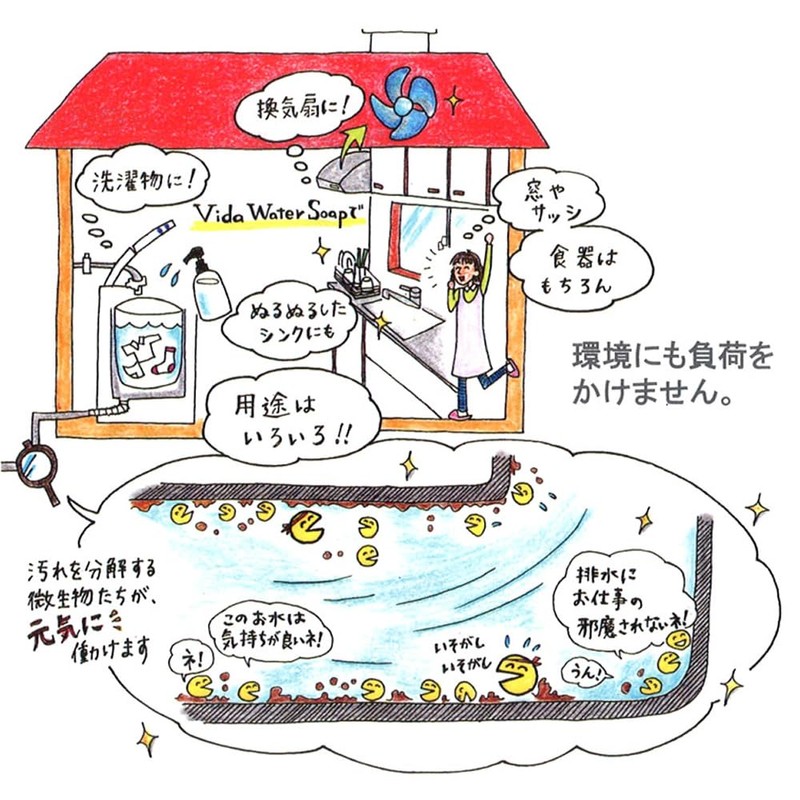 換気扇に!
洗濯物に!
Vida Water Soapで
窓や
サッシ
食器は
もちろん
ぬるぬるした
シンクにも
用途は
いろいろ!!
環境にも負荷を
かけません。
汚れを分解する
微生物たちが、
元気に
働けます
ネ!
このお水は
気持ちが良いネ!
いそがし
いそがし
排水に
お仕事の
邪魔されないネ!
うん!